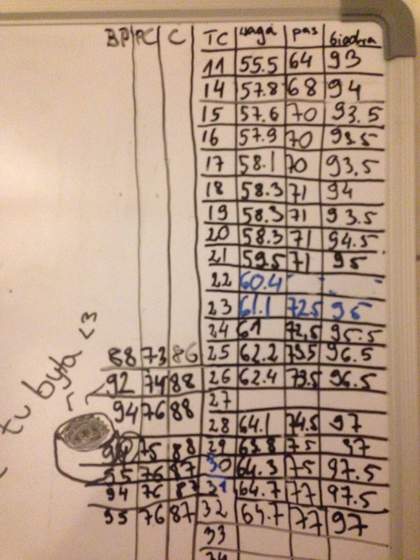 BP PC C TC waga pas biodra
11 55.5 64 93
14 57.8 68 94
15 57.6 70 93.5
16 57.9 70 93.5
17 58.1 70 93.5
18 58.3 71 94
19 58.3 71 93.5
20 58.3 71 94.5
21 59.5 71 95
22 60.4
23 61.1 72.5 95
24 61 72.5 95.5
88 73 86 25 62.2 73.5 96.5
92 74 88 26 62.4 73.5 96.5
94 76 88 27
28 64.1 74.5 97
75 88 29 63.8 75 97
95 76 87 30 64.3 75 97.5
94 76 87 31 64.7 77 97.5
95 76 87 32 64.7 77 97
33
34
tu była <3